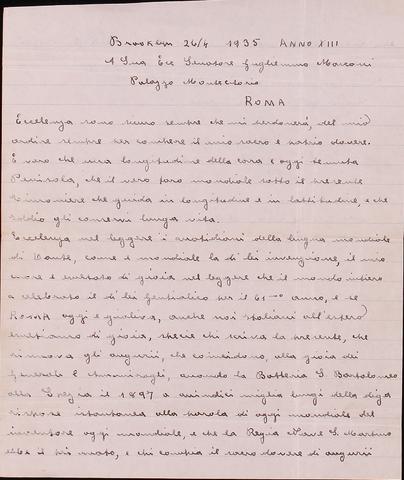 Brooklyn 26/4 1935 ANNO XIII
A Sua Ecc Senatore Guglielmo Marconi
Palazzo Montecitorio
ROMA
Eccelenza sono sicuro sempre che mi perdonerà, del mio
ardire sempre per compiere il mio sacro e patrio dovere.
È vero che una longitudine della cara e oggi temuta
Penisola, che il vero faro mondiale sotto il presente
che guida in longitudine e in latitudine, e che
Iddio gli conservi lunga vita.
Eccelenza nel leggere i quotidiani della lingua mondiale
di Dante, come è mondiale la di lei invenzione, il mio
cuore è esultato di gioia nel leggere che il mondo intiero
a celebrato il di lei Genetliaco per il 61 mo anno, e se
ROMA oggi è gioliva, anche noi Italiani all'estero
esultiamo di gioia, specie chi scriva la presente, che
rinnova gli augurii, che coincidono, alla gioia dei
Generali e Ammiragli, quando la Batteria S. Bartolomeo
alla Spezia il 1897 a quindici miglia lungi della diga
rispose istantanea alla parola di oggi mondiale del
inventore oggi mondiale, e che la Regia Nave S. Martino
ebbe il primato, e chi compia il sacro dovere di augurii